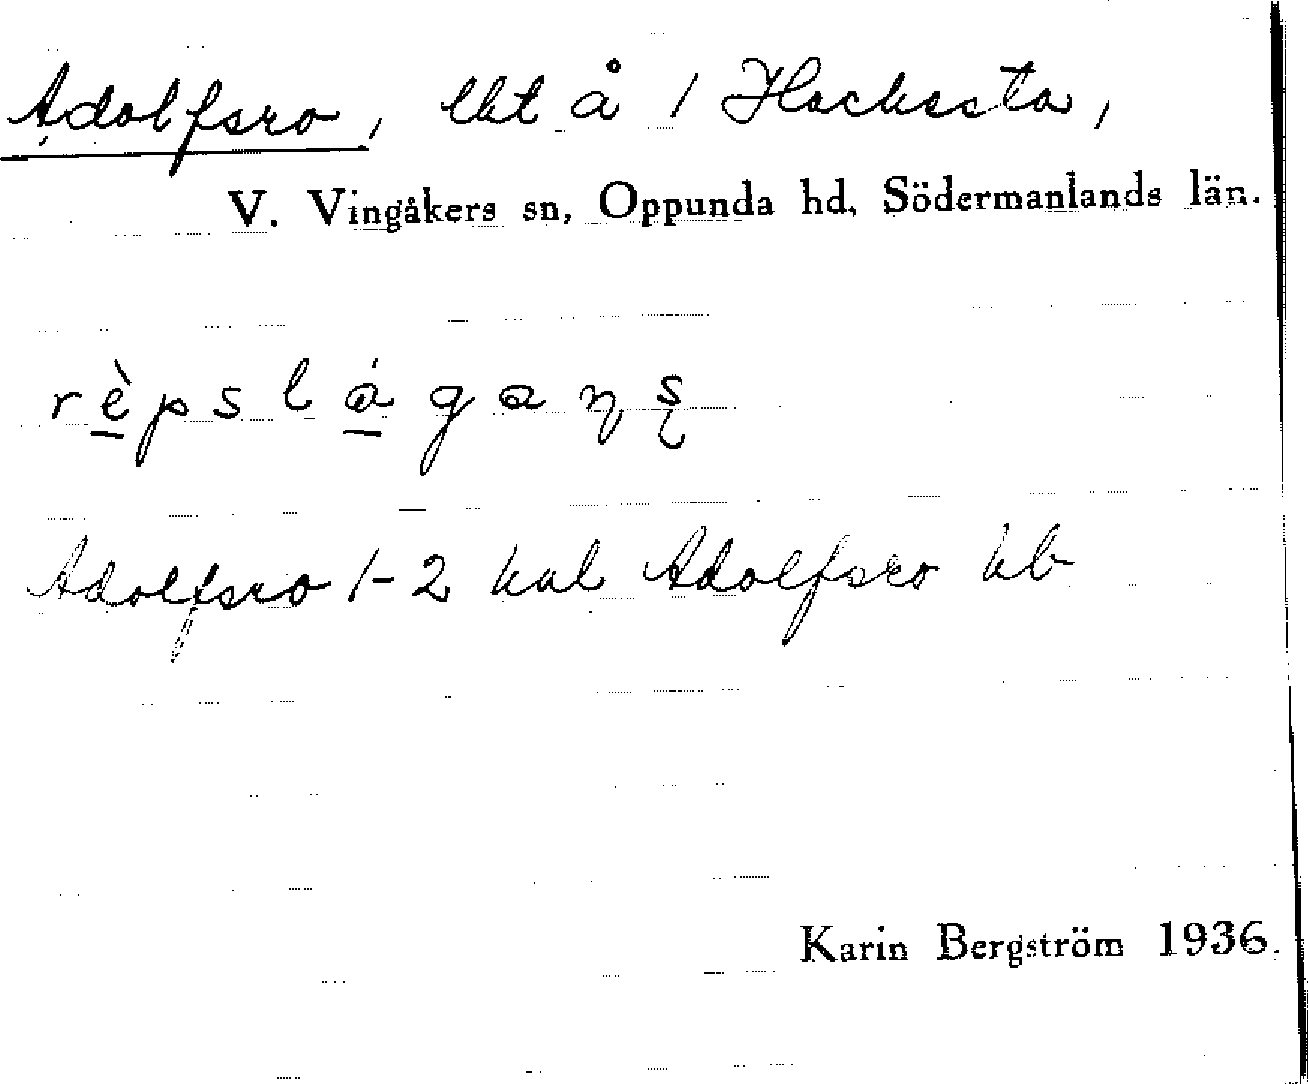 Adolfsro, lht å 1 Hacksta,
V. Vingåkers sn, Oppunda hd, Södermanlands län.
rèpslágaɳʂ
Adolfsro 1-2 kal Adolfsro hb
Karin Bergström 1936.